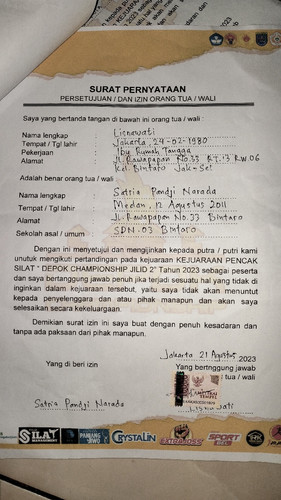 SURAT PERNYATAAN
PERSETUJUAN / DAN IZIN ORANG TUA / WALI
Saya yang bertanda tangan di bawah ini orang tua / wali :
Nama lengkap : Lisnawati
Tempat / Tgl lahir : Jakarta, 24-02-1980
Pekerjaan : Ibu Rumah Tangga
Alamat : Jl. Rawapapan No.33 RT.13 RW.06
Kel. Bintaro Jak-Sel
Adalah benar orang tua / wali :
Nama lengkap : Satria Pandji Narada
Tempat / Tgl lahir : Medan, 12 Agustus 2011
Alamat : Jl. Rawapapan No.33 Bintaro
Sekolah asal / umum : SDN. 03 Bintaro
Dengan ini menyetujui dan mengijinkan kepada putra / putri kami
unutuk mengikuti pertandingan pada kejuaraan KEJUARAAN PENCAK
SILAT " DEPOK CHAMPIONSHIP JILID 2" Tahun 2023 sebagai peserta
dan saya bertanggung jawab penuh jika terjadi sesuatu hal yang tidak di
inginkan dalam kejuaraan tersebut, yaitu saya tidak akan menuntut
kepada penyelenggara dan atau pihak manapun dan akan saya
selesaikan secara kekeluargaan.
Demikian surat izin ini saya buat dengan penuh kesadaran dan
tanpa ada paksaan dari pihak manapun.
Jakarta 21 Agustus 2023
Yang di beri izin
Yang bertnggung jawab
tua / wali
TEMPEL
Satria Pandji Narada
SILAT
CRYSTALIN
EXTRAJOSS
SPORT